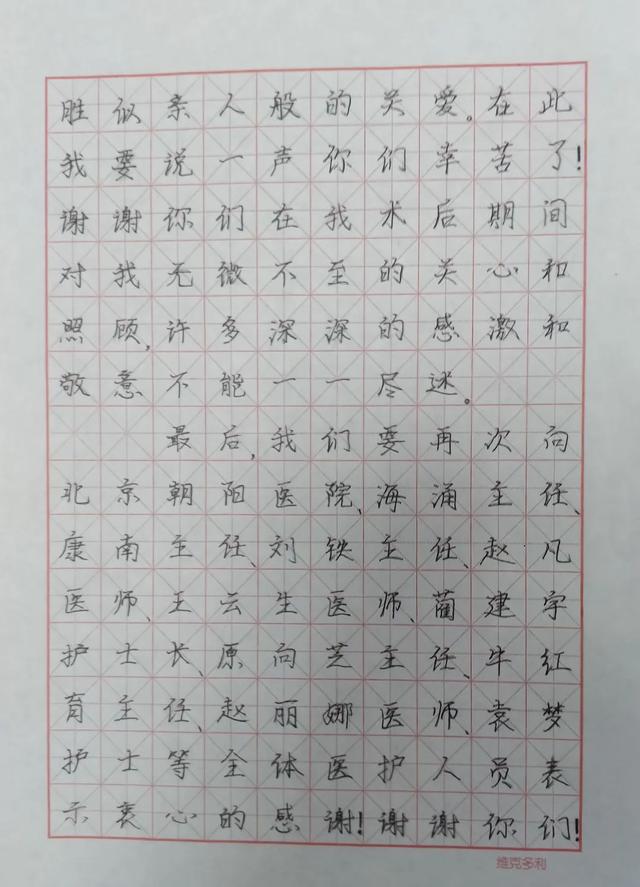 胜似亲人般的关爱。在此
我要说一声你们幸苦了!
谢谢你们在我术后期间
对我无微不至的关心和
照顾,许多深深的感激和
敬意不能一一尽述。
最后,我们要再次向
北京朝阳医院、海涌主任、
康南主任、刘铁主任、赵凡
医师、王云生医师、蔺建宇
护士长、原向芝主任、牛红
育主任、赵丽娜医师、袁梦
护士等全体医护人员表
示衷心的感谢!谢谢你们!
维克多利